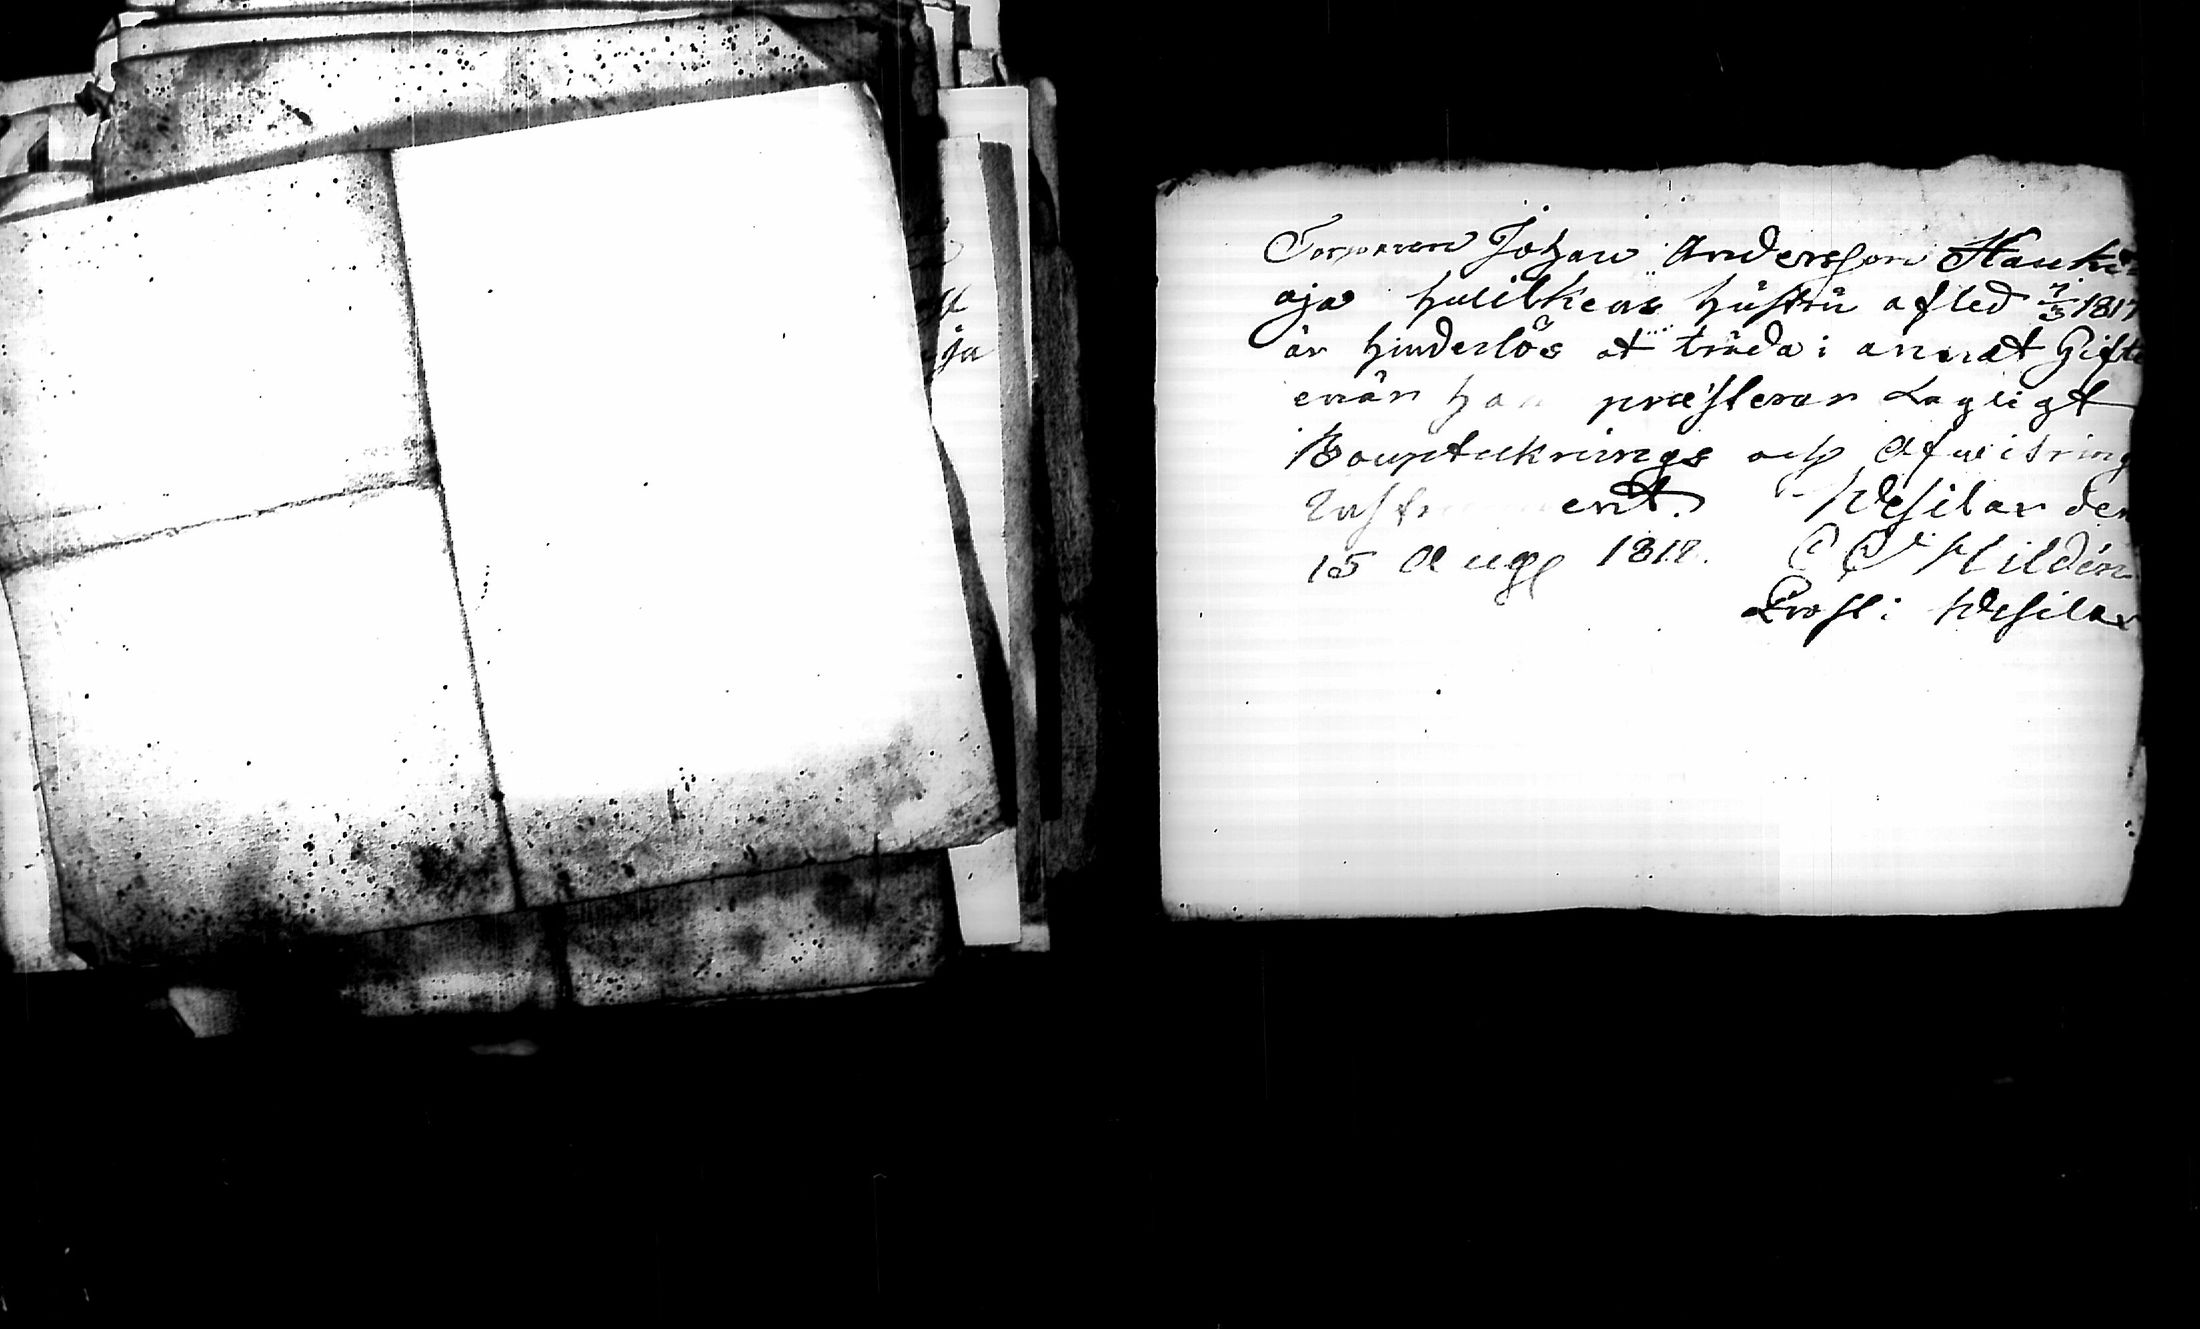 Torparen Johan Andersson Hauki
oja hvilkens hustru afled 7/3 1817
är hinderlös at träda i annat Gifte
enär han præsterar Lagligt
Boupteknings och Afwitring
Instrument. Wesilax den
15 Aug 1817. Hildén
Prost i Wesilax
ja